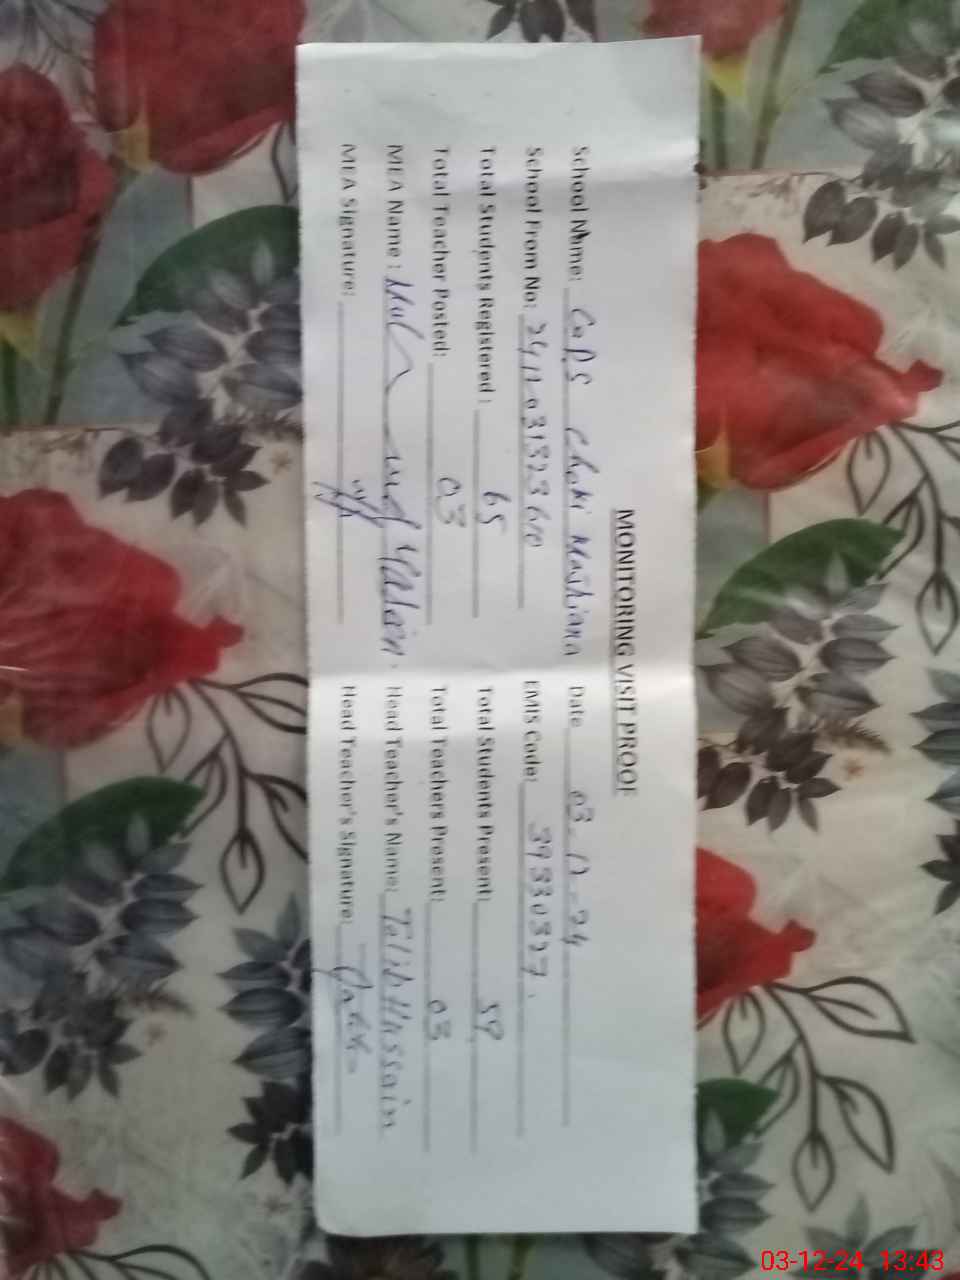 MONITORING VISIT PROOF
School Name: GPS Choki Mashiana Date 03-12-24
School From No: EMIS Code: 39330327.
Total Students Registered : 65 Total Students Present: 59
Total Teacher Posted: 03 Total Teachers Present: 03
MEA Name : Head Teacher's Name: Talib Hussain
MEA Signature: Head Teacher's Signature:
03-12-24 13:43